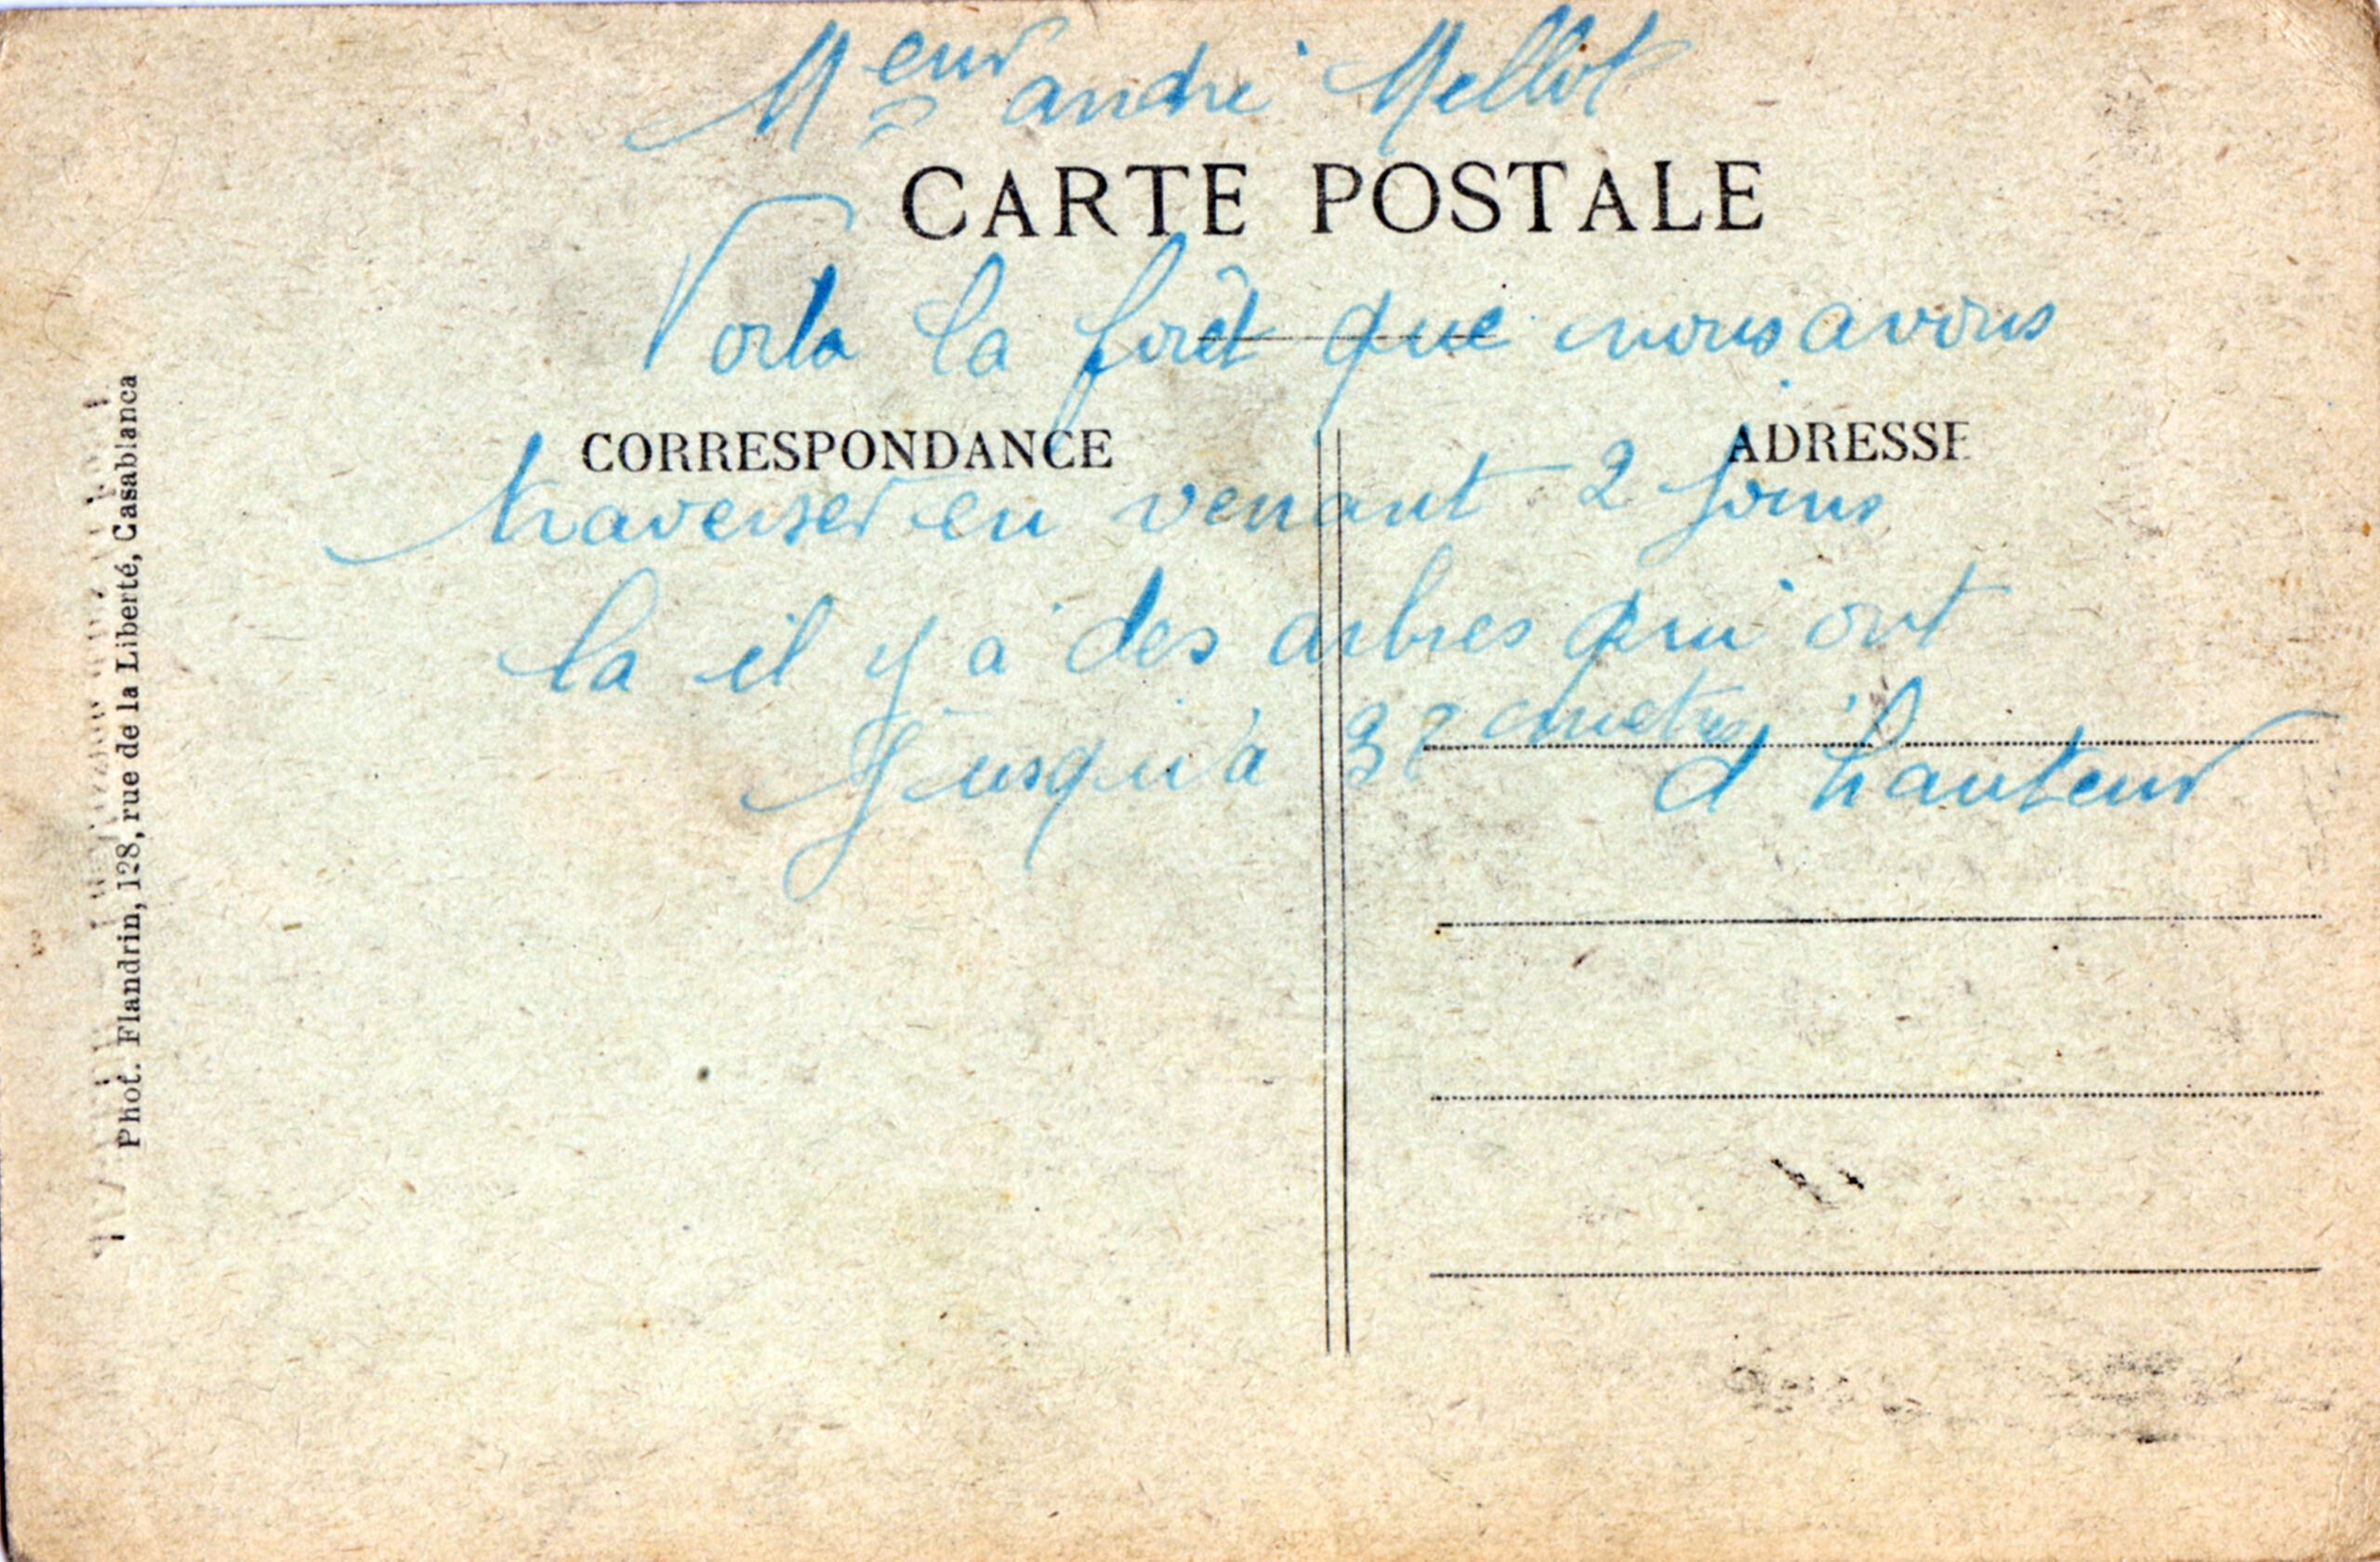 Meur andré Mellot
CARTE POSTALE
Voila la forêt que nous avons
CORRESPONDANCE
ADRESSE
traverser en venant 2 jours
la il y a des arbres qui ont
Jusqu'à 37 metres d'hauteur
Phot. Flandrin, 128, rue de la Liberté, Casablanca